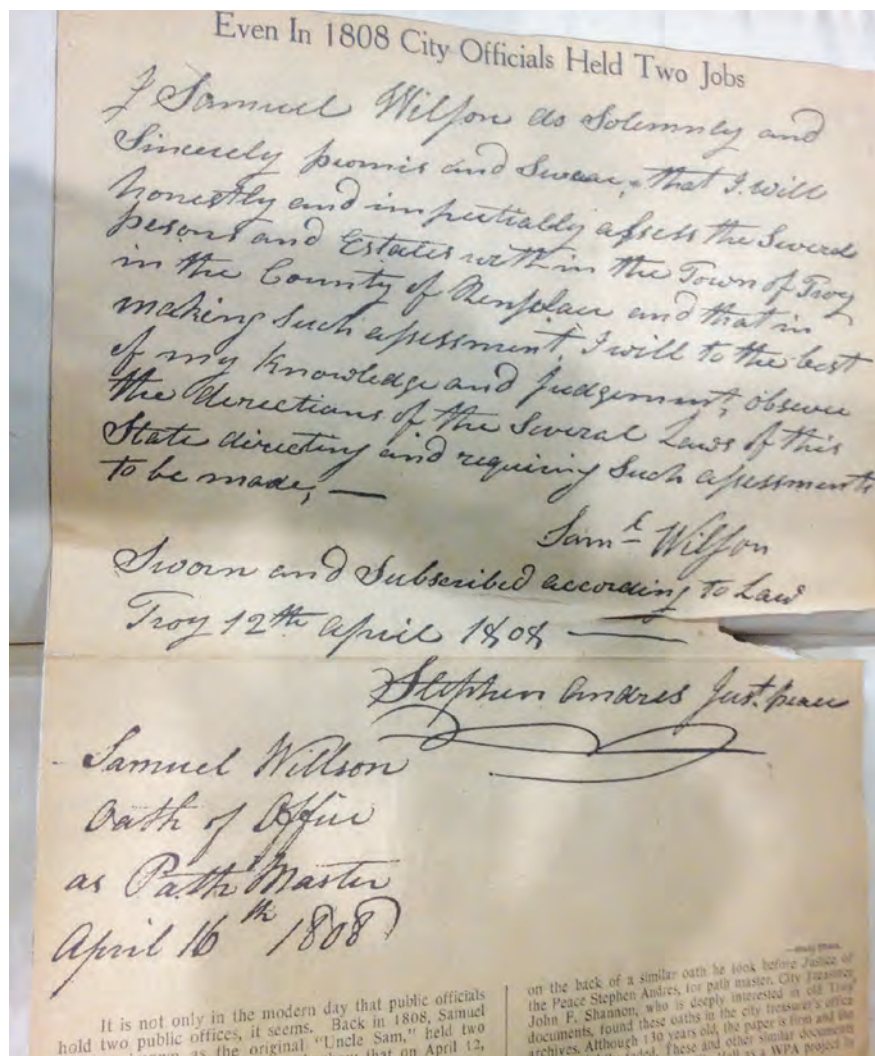 Even In 1808 City Officials Held Two Jobs
I Samuel Wilson do Solemnly and
Sincerely promis and Swear, that I will
honestly and impartially assess the Several
persons and Estates with in the Town of Troy
in the County of Renslaer and that in
making Such assessment, I will to the best
of my Knowledge and Judgement, observe
the directions of the Several Laws of this
State directing and requiring Such assessments
to be made, —
Saml Wilson
Sworn and Subscribed according to Law
Troy 12th april 1808 —
Stephen Andres Just. peace
Samuel Willson
Oath of Office
as Path Master
April 16th 1808
It is not only in the modern day that public officials
hold two public offices, it seems. Back in 1808, Samuel
as the original "Uncle Sam," held two
that on April 12,
on the back of a similar oath he took before Justice of
the Peace Stephen Andres, for path master. City Treasurer
John F. Shannon, who is deeply interested in old Troy
documents, found these oaths in the city treasurer's office
archives. Although 130 years old, the paper is firm and the
These and other similar documents
as a WPA project in